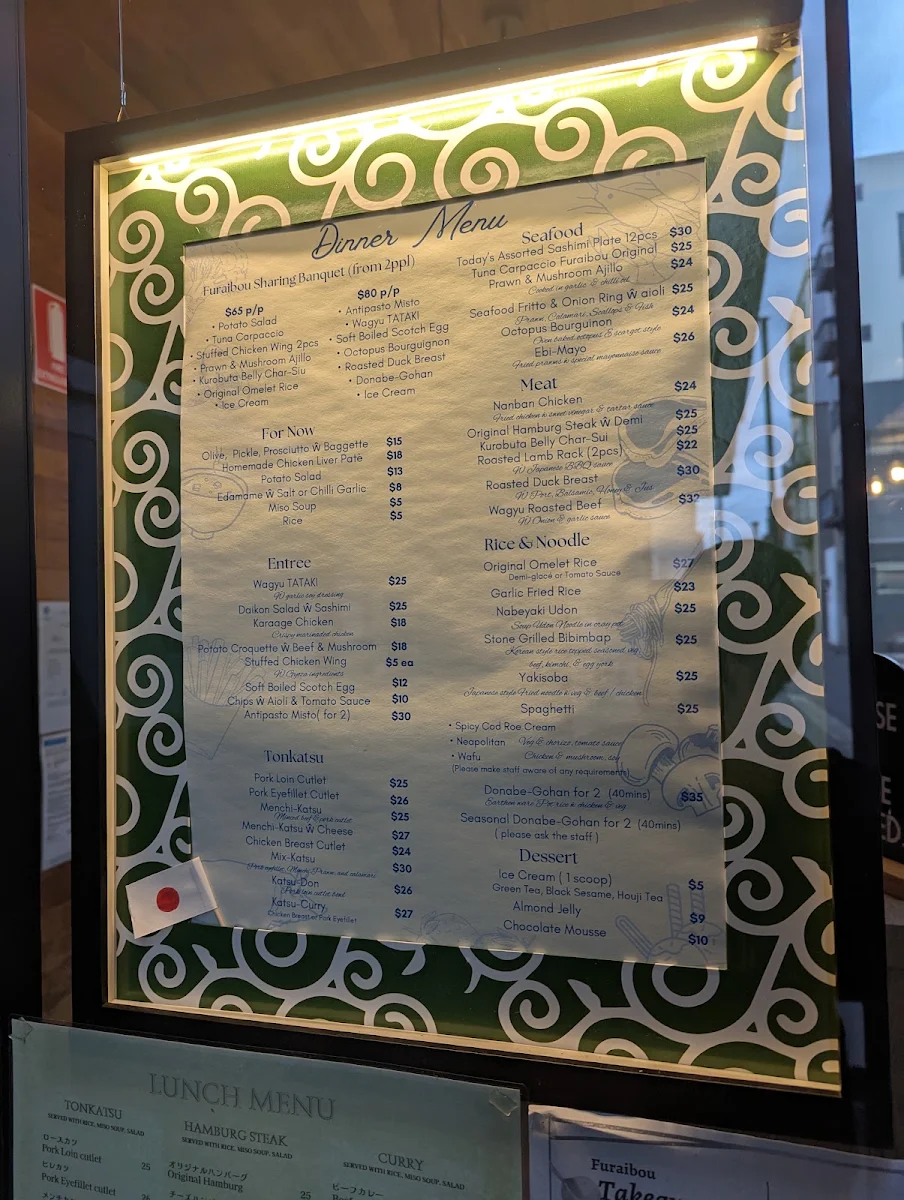 Dinner Menu
Furaibou Sharing Banquet (from 2ppl)
$65 p/p
• Potato Salad
• Tuna Carpaccio
• Stuffed Chicken Wing 2pcs
• Prawn & Mushroom Ajillo
• Kurobuta Belly Char-Siu
• Original Omelet Rice
• Ice Cream
$80 p/p
• Antipasto Misto
• Wagyu TATAKI
• Soft Boiled Scotch Egg
• Octopus Bourguignon
• Roasted Duck Breast
• Donabe-Gohan
• Ice Cream
For Now
Olive, Pickle, Prosciutto Ŵ Baggette $15
Homemade Chicken Liver Pate $18
Potato Salad $13
Edamame Ŵ Salt or Chilli Garlic $8
Miso Soup $5
Rice $5
Entree
Wagyu TATAKI $25
W garlic soy dressing
Daikon Salad Ŵ Sashimi $25
Karaage Chicken $18
Crispy marinaded chicken
Potato Croquette Ŵ Beef & Mushroom $18
Stuffed Chicken Wing $5 ea
W Gyoza ingredients
Soft Boiled Scotch Egg $12
Chips Ŵ Aioli & Tomato Sauce $10
Antipasto Misto( for 2) $30
Tonkatsu
Pork Loin Cutlet $25
Pork Eyefillet Cutlet $26
Menchi-Katsu $25
Minced beef & pork cutlet
Menchi-Katsu Ŵ Cheese $27
Chicken Breast Cutlet $24
Mix-Katsu $30
Pork eyefillet, Menchi, Prawn, and calamari
Katsu-Don $26
Pork loin cutlet bowl
Katsu-Curry $27
Chicken Breast or Pork Eyefillet
Seafood
Today's Assorted Sashimi Plate 12pcs $30
Tuna Carpaccio Furaibou Original $25
Prawn & Mushroom Ajillo $24
Cooked in garlic & chilli oil
Seafood Fritto & Onion Ring Ŵ aioli $25
Prawn, Calamari, Scallops & Fish
Octopus Bourguinon $24
Oven baked octopus & escargot style
Ebi-Mayo $26
Fried prawns & special mayonnaise sauce
Meat
Nanban Chicken $24
Fried chicken & sweet vinegar & tartar sauce
Original Hamburg Steak Ŵ Demi $25
Kurobuta Belly Char-Sui $25
Roasted Lamb Rack (2pcs) $22
W Japanese BBQ sauce
Roasted Duck Breast $30
W Port, Balsamic, Honey & Jus
Wagyu Roasted Beef $32
W Onion & garlic sauce
Rice & Noodle
Original Omelet Rice $27
Demi-glacé or Tomato Sauce
Garlic Fried Rice $23
Nabeyaki Udon $25
Soup Udon Noodle in crazy pot
Stone Grilled Bibimbap $25
Korean style rice topped seasoned veg,
beef, kimchi, & egg york
Yakisoba $25
Japanese style Fried noodle & veg & beef / chicken
Spaghetti $25
• Spicy Cod Roe Cream
• Neapolitan Veg & chorizo, tomato sauce
• Wafu Chicken & mushroom, soy
(Please make staff aware of any requirements)
Donabe-Gohan for 2 (40mins) $35
Earthen ware Pot rice & chicken & veg
Seasonal Donabe-Gohan for 2 (40mins)
( please ask the staff )
Dessert
Ice Cream ( 1 scoop) $5
Green Tea, Black Sesame, Houji Tea
Almond Jelly $9
Chocolate Mousse $10
LUNCH MENU
TONKATSU
SERVED WITH RICE, MISO SOUP, SALAD
ロースカツ
Pork Loin cutlet 25
ヒレカツ
Pork Eyefillet cutlet 26
HAMBURG STEAK
SERVED WITH RICE, MISO SOUP, SALAD
オリジナルハンバーグ
Original Hamburg 25
CURRY
SERVED WITH RICE, MISO SOUP, SALAD
ビーフカレー
Furaibou